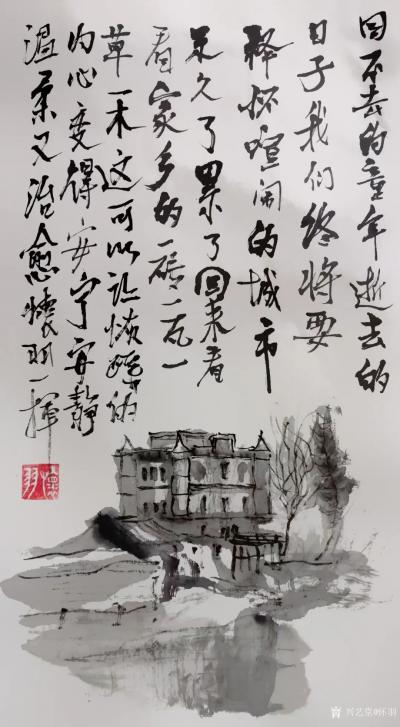 回不去的童年逝去的
日子我们终将要
释怀喧闹的城市
呆久了累了回来看
看家乡的一砖一瓦一
草一木这可以让疲惫的
内心变得安宁安静
温柔又治愈怀羽一挥
怀羽
兴艺堂@怀羽